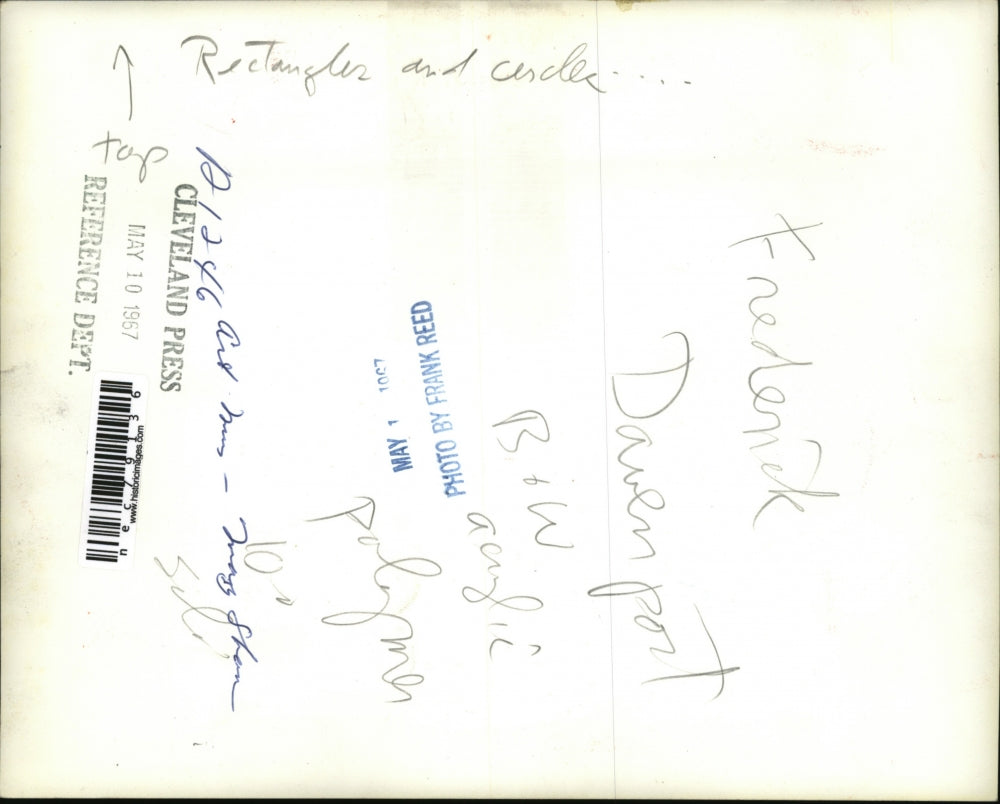 Rectangles and circles....
top
Frederick
Davenport
B + W
acrylic
polymer
PHOTO BY FRANK REED
MAY 1 1967
A 1246 Art Mus - May Show
CLEVELAND PRESS
MAY 10 1967
REFERENCE DEPT.
www.historicimages.com
nec79136